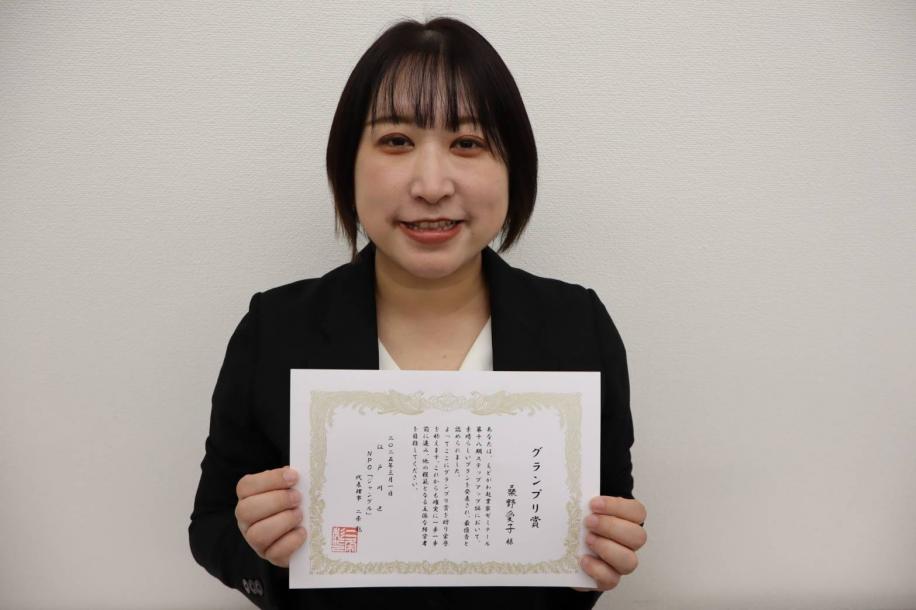 グランプリ賞
桑野愛子 様
あなたは、えどがわ起業家ゼミナール
第十八期ステップアップ編において、
素晴らしいプランを発表され、最優秀と
認められました。
よってここにグランプリ賞を贈り栄誉
を称えます。これからも確実に一歩一歩
前に進み、他の模範となる立派な経営者
を目指してください。
二〇二五年三月一日
江戸川区
NPO「ジャングル」
代表理事 二条